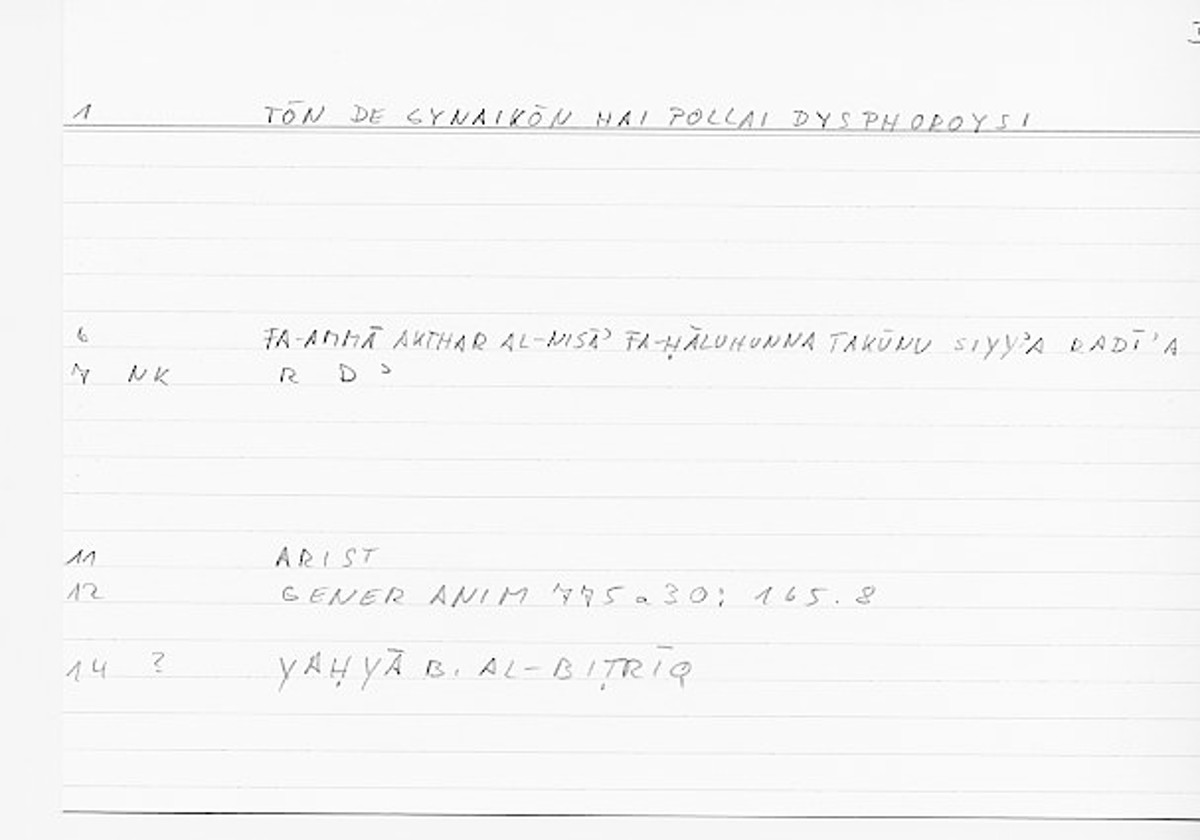 1 TŌN DE GYNAIKŌN HAI POLLAI DYSPHOROYSI
6 FA-AMMĀ AKTHAR AL-NISĀʾ FA-ḤĀLUHUNNA TAKŪNU SIYYʾA RADĪʾA
7 NK R D ʾ
11 ARIST
12 GENER ANIM 775a30; 165.8
14 ? YAḤYĀ B. AL-BIṬRĪQ